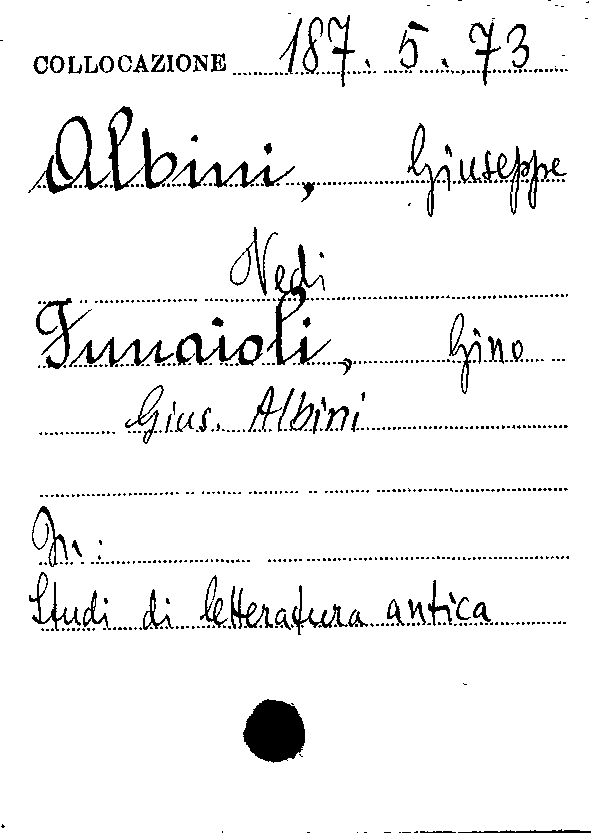 COLLOCAZIONE 187. 5. 73
Albini, Giuseppe
Vedi
Funaioli, Gino
Gius. Albini
In:
Studi di letteratura antica